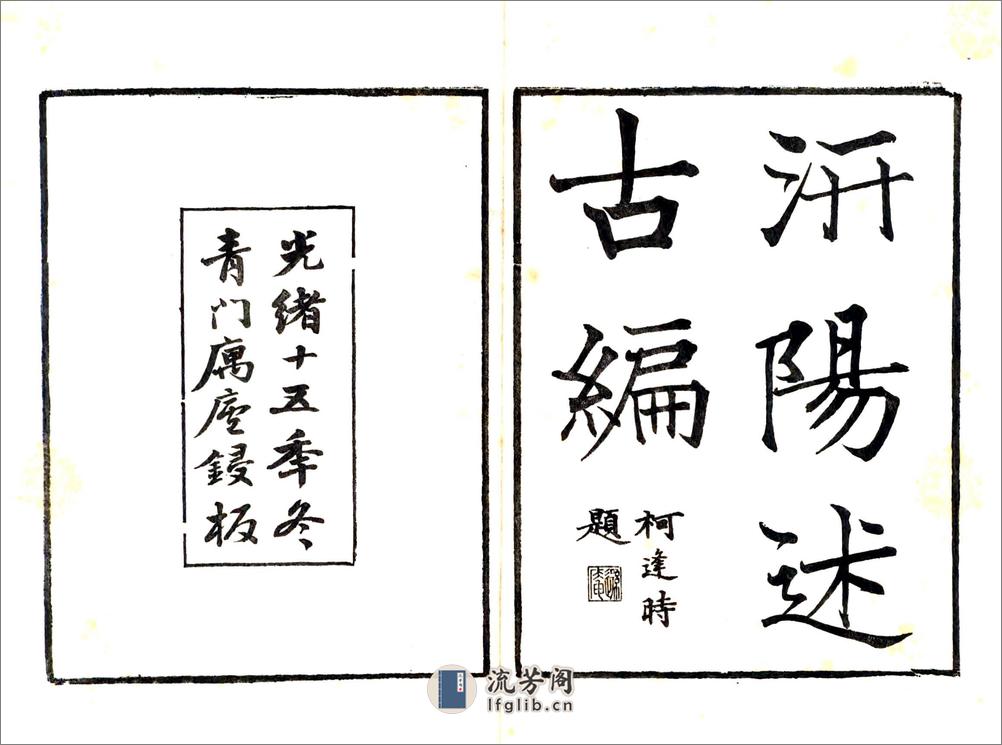 汧陽述
古編
柯逢時
題
光緒十五季冬
青門庽廬鋟板
流芳阁
lfglib.cn